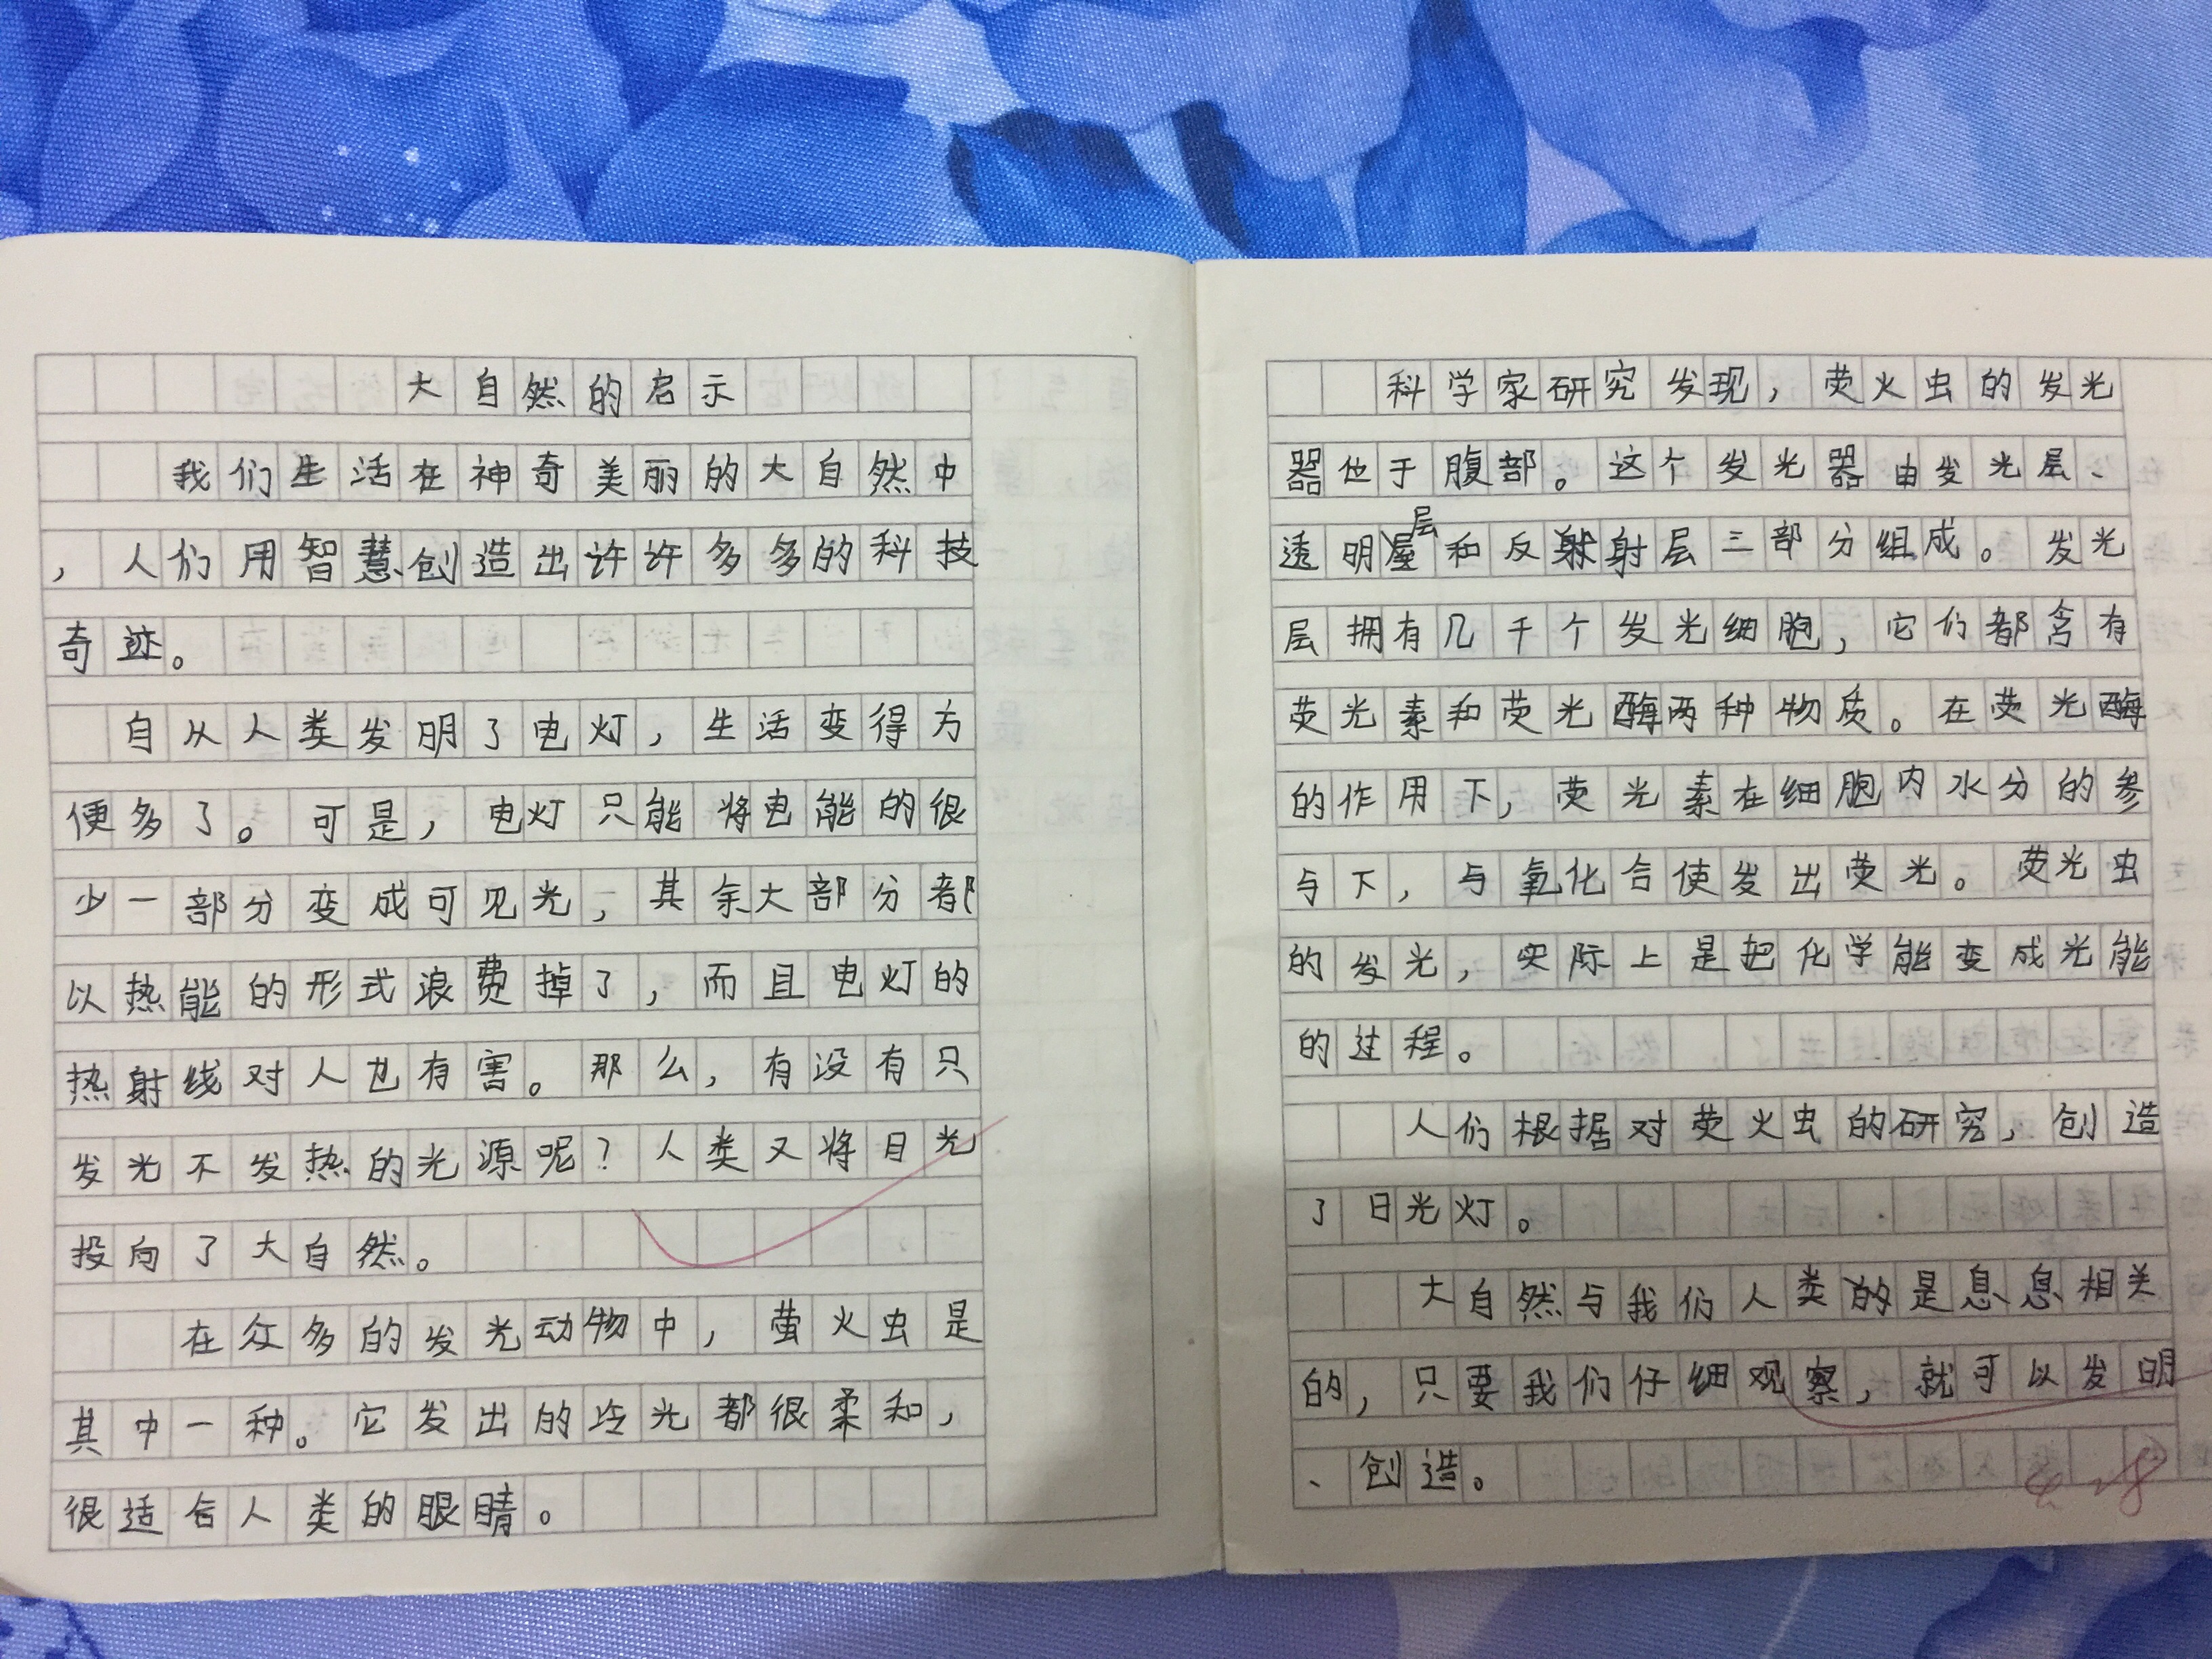 大自然的启示
我们生活在神奇美丽的大自然中
，人们用智慧创造出许许多多的科技
奇迹。
自从人类发明了电灯，生活变得方
便多了。可是，电灯只能将电能的很
少一部分变成可见光，其余大部分都
以热能的形式浪费掉了，而且电灯的
热射线对人也有害。那么，有没有只
发光不发热的光源呢？人类又将目光
投向了大自然。
在众多的发光动物中，萤火虫是
其中一种。它发出的冷光都很柔和，
很适合人类的眼睛。
科学家研究发现，荧火虫的发光
器位于腹部。这个发光器由发光层、
透明层和反射层三部分组成。发光
层拥有几千个发光细胞，它们都含有
荧光素和荧光酶两种物质。在荧光酶
的作用下，荧光素在细胞内水分的参
与下，与氧化合使发出荧光。荧光虫
的发光，实际上是把化学能变成光能
的过程。
人们根据对荧火虫的研究，创造
了日光灯。
大自然与我们人类的是息息相关
的，只要我们仔细观察，就可以发明
、创造。